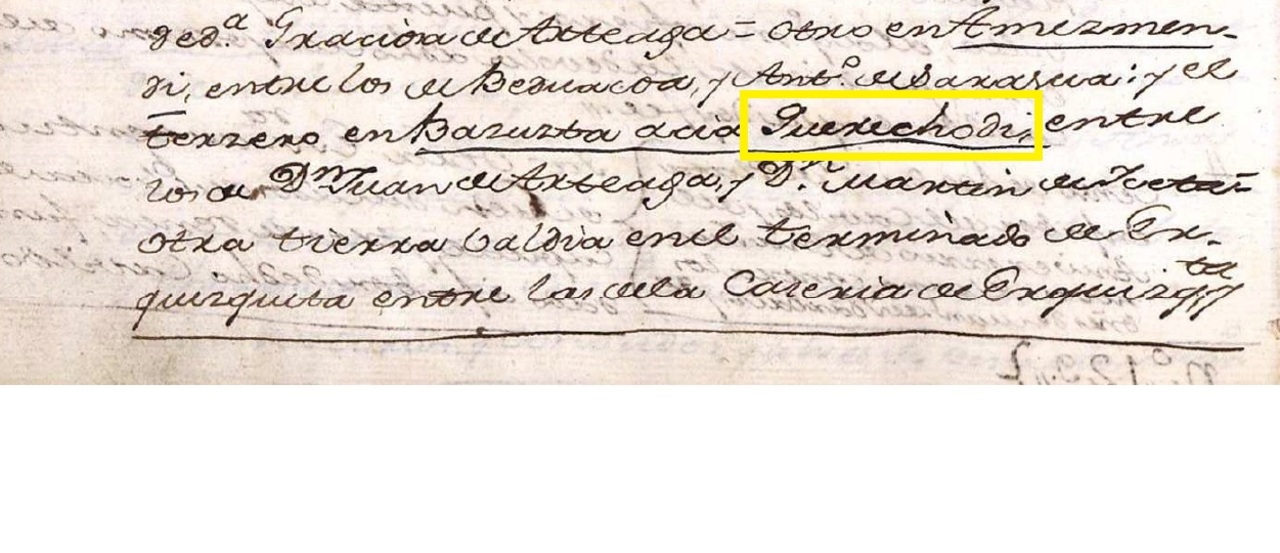 ded.ª Graciosa de Arteaga = otro en Amezmen-
di, entre los de Beduacoa, y Ant.º de Sarasua: y el
terzero en Bazuzta acia Guerechodi, entre
los de Dⁿ Juan de Arteaga, y D.ⁿ Martin de
otra tierra valdia en el terminado de Er-
quizquita entre las de la Caseria de Erquizq.ta
N.º 123,,